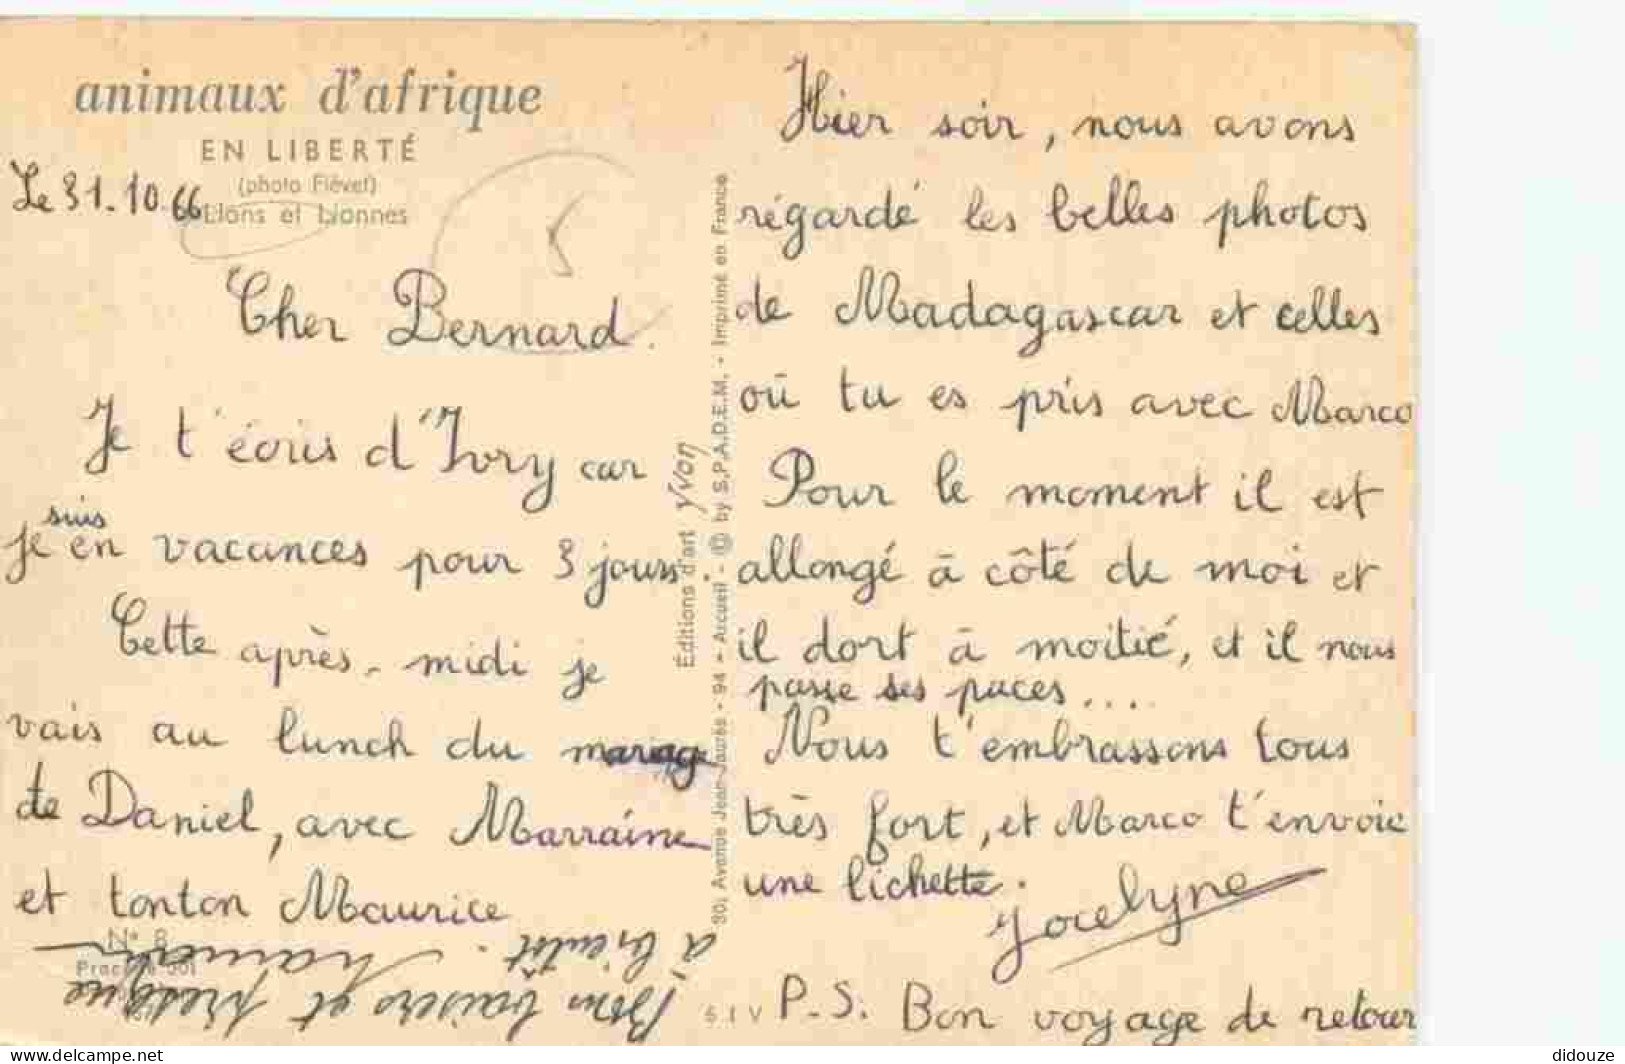 animaux d'afrique
EN LIBERTÉ
(photo Fiévet)
Lions et Lionnes
Le 31.10.66
Cher Bernard.
Je t'écris d'Ivry car
je suis en vacances pour 3 jours.
Cette après-midi je
vais au lunch du mariage
de Daniel, avec Marraine
et tonton Maurice
N° 8
Bons baisers et presque
à bientôt.
Éditions d'art Yvon
30, Avenue Jean-Jaurès - 94 - Arcueil - © by S.P.A.D.E.M. - Imprimé en France
Hier soir, nous avons
régardé les belles photos
de Madagascar et celles
où tu es pris avec Marco
Pour le moment il est
allongé à côté de moi et
il dort à moitié, et il nous
passe ses puces....
Nous t'embrassons tous
très fort, et Marco t'envoie
une lichette.
Jocelyne
5 I V
P.S. Bon voyage de retour
delcampe.net
didouze